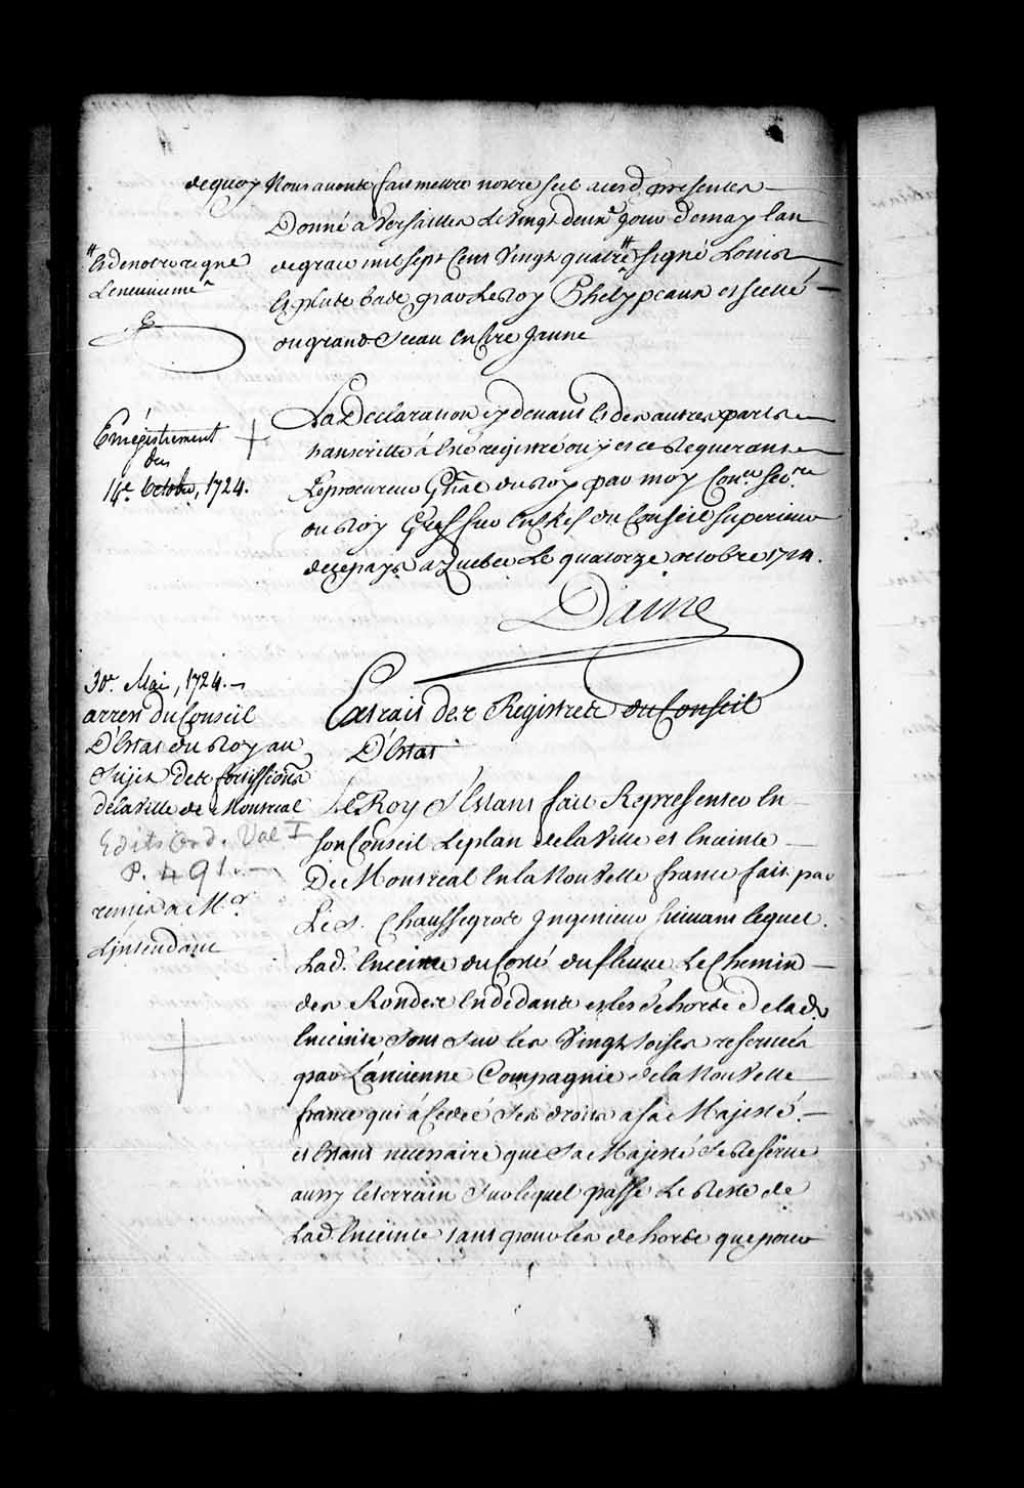 de quoy Nous avons fait mettre nostre scel a cesd. presentes
Donné a Versailles Le Vingt deuxe. jour de may l'an
de grace mil sept Cent Vingt quatre # signé Louis
Et plus bas, par Le Roy Phelypeaux et scellé
du grand Sceau en Cire Jaune
# Et de notre regne
Le neuvieme
La Declaration cy devant et des autres parts
transcritte à Eté registré ouy et ce Requerant
Le procureur Gñal du Roy par moy Coner. Secre.
du Roy Greffier en Chef du Conseil Superieur
de ce pays a Quebec Le quatorze octobre 1724.
Enrégistrement
du
14e. Octobre, 1724.
Daine
Extrait des Registres du Conseil
D'Estat
30e. Mai, 1724.
arrest du Conseil
D'Estat du Roy au
Sujet des fortiffions
de la Ville de Montreal
Edits Ord. Vol I
P. 491.
remis a Mr.
L'intendant
Le Roy S'Estant fait Representer En
son Conseil Le plan de la Ville et Enceinte
De Montreal En la Nouvelle france fait par
Le S. Chaussegros Ingenieur suivant lequel
Lad. Enceinte du Costé du fleuve Le Chemin
des Rondes En dedans et les dehors de lad.
Enceinte sont sur les Vingt toises reservées
par L'ancienne Compagnie de la Nouvelle
france qui à Cedé ses droits a sa Majesté
et Estant necessaire que Sa Majesté se Reserve
aussy le terrain sur lequel passe Le Reste de
Lad. Enceinte tant pour les dehors que pour